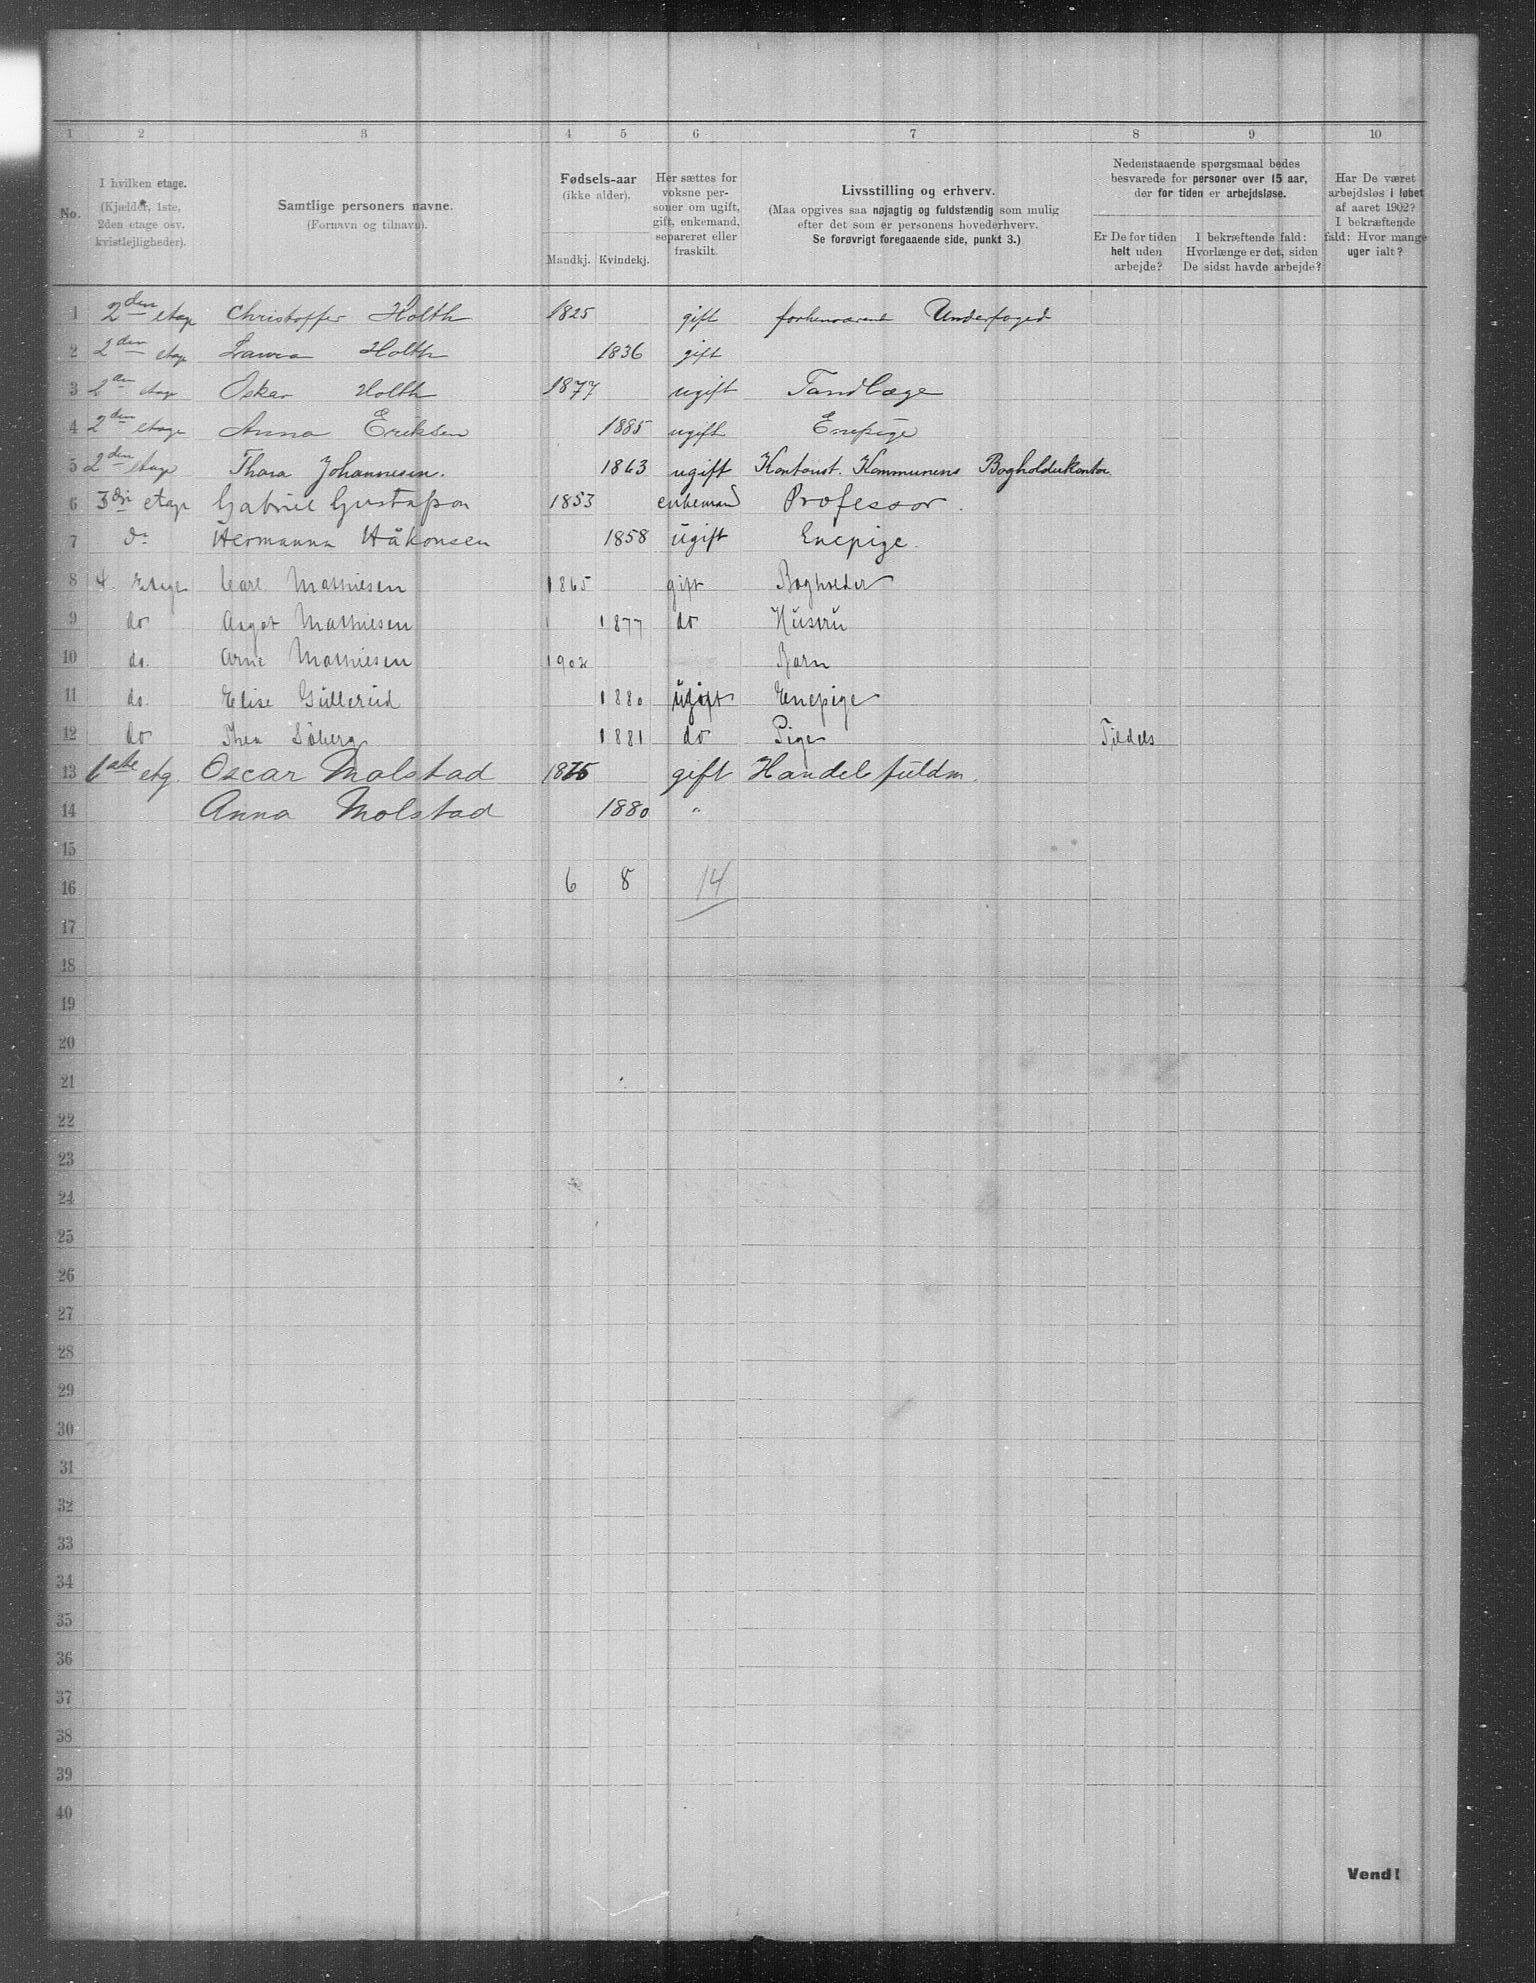 1 2 3 4 5 6 7 8 9 10
No.
I hvilken etage.
(Kjælder, 1ste,
2den etage osv.
kvistlejligheder).
Samtlige personers navne.
(Fornavn og tilnavn).
Fødsels-aar
(ikke alder).
Mandkj. Kvindekj.
Her sættes for
voksne per-
soner om ugift,
gift, enkemand,
separeret eller
fraskilt.
Livsstilling og erhverv.
(Maa opgives saa nøjagtig og fuldstændig som mulig
efter det som er personens hovederhverv.
Se forøvrigt foregaaende side, punkt 3.)
Nedenstaaende spørgsmaal bedes
besvarede for personer over 15 aar,
der for tiden er arbejdsløse.
Er De for tiden
helt uden
arbejde?
I bekræftende fald:
Hvorlænge er det, siden
De sidst havde arbejde?
Har De været
arbejdsløs i løbet
af aaret 1902?
I bekræftende
fald: Hvor mange
uger ialt?
1 2den etage Christoffer Holth 1825 gift forhenværende Underfoged
2 2den etage Laura Holth 1836 gift
3 2den etage Oskar Holth 1877 ugift Tandlæge
4 2den etage Anna Eriksen 1885 ugift Enepige
5 2den etage Thora Johannesen. 1863 ugift Kontorist. Kommunens Bogholderkontor
6 3die etage Gabriel Gustafson 1853 enkemand Professor.
7 do Hermanna Håkonsen 1858 ugift Enepige.
8 4. Etage Carl Mathiesen 1865 gift Bogholder
9 do Aagot Mathiesen 1877 do Hustru
10 do. Arne Mathiesen 1902 Barn
11 do. Elise Gullerud 1880 ugift Enepige
12 do Thea Söberg 1881 do Pige Tildels
13 1ste etg. Oscar Molstad 1875 gift Handelsfuldm.
14 Anna Molstad 1880 "
15
16 6 8 14
17
18
19
20
21
22
23
24
25
26
27
28
29
30
31
32
33
34
35
36
37
38
39
40
Vend!